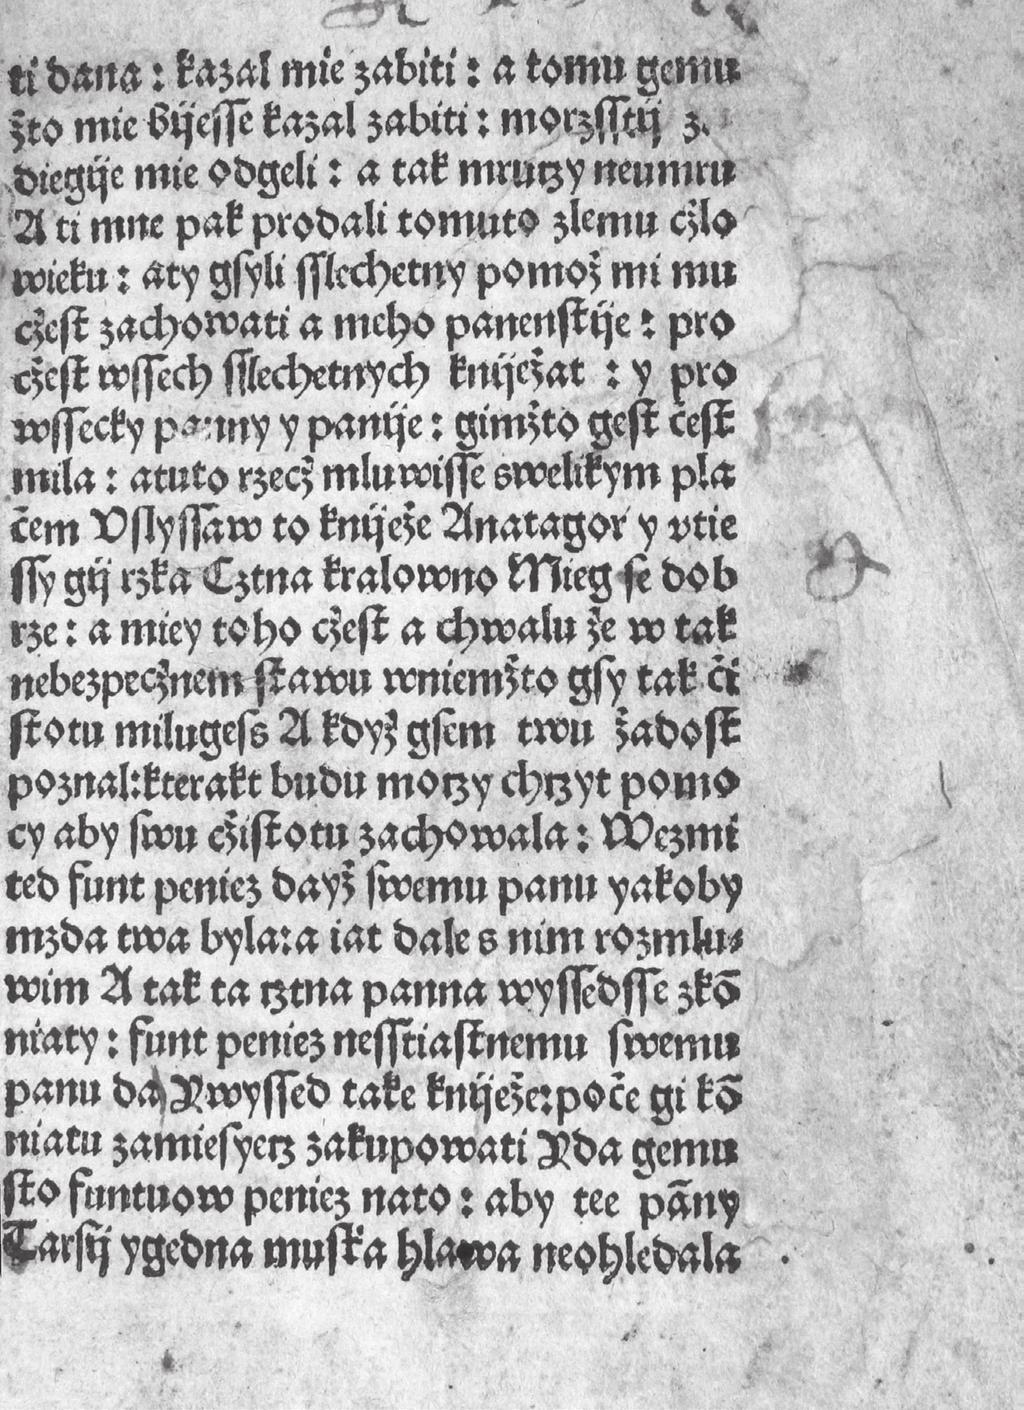 ti dana : kazal mie zabiti : a tomu gemu
žto mie bijesse kazal zabiti : morzsstij
diegije mie odgeli : a tak mrutzy neumru
A ti mne pak prodali tomuto zlemu cžlo
wieku : aty gsyli sslechetny pomož mi mu
cžest zachowati a meho panenstije : pro
cžest wssech sslechetnych kniježat : y pro
wssecky panny y panije : gimžto gest čest
mila : atuto rzecž mluwisse swelikym pla
čem Vslyssaw to kniježe Anatagor y vtie
ssy gij rzka Cztna kralowno Mieg se dob
rze : a miey toho cžest a chwalu že w tak
nebezpecžnem stawu wniemžto gsy tak či
stotu milugess A když gsem twu žadost
poznal:kterakt budu motzy chtzyt pomo
cy aby swu cžistotu zachowala : Wezmi
ted funt peniez dayž swemu panu yakoby
mzda twa byla:a iat dale s nim rozmlu⸗
wim A tak ta tztna panna wyssedsse zkō
niaty : funt peniez nesstiastnemu swemu
panu da Rwyssed take kniježe:poče gi kō
niatu zamiesyetz zakupowati Rda gemu
sto funtuow peniez nato : aby tee pāny
Tarsij ygedna muska hlawa neohledala